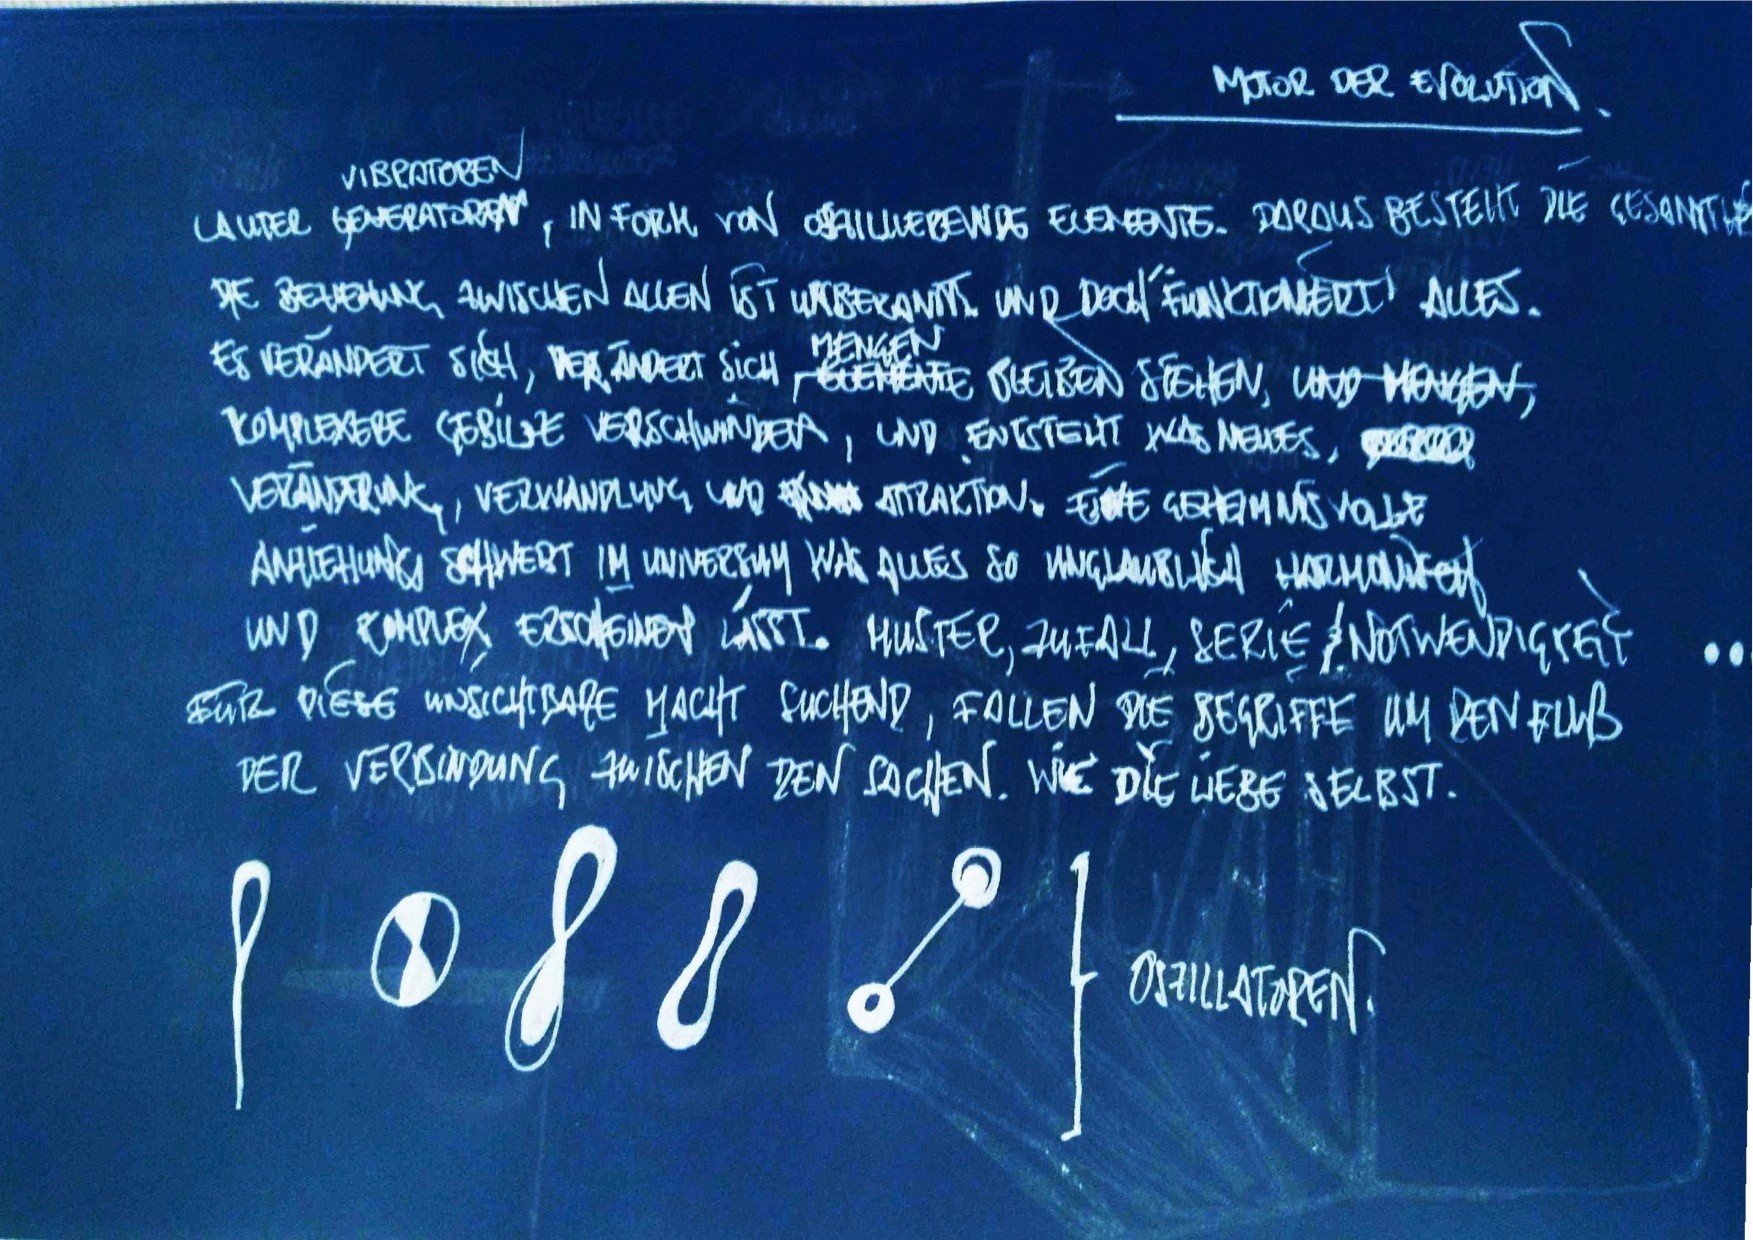 MOTOR DER EVOLUTION.
VIBRATOREN
LAUTER GENERATOREN, IN FORM VON OSZILLIERENDE ELEMENTE. DARAUS BESTEHT DIE GESAMTH
DIE BEZIEHUNG ZWISCHEN ALLEN IST UNBEKANNT. UND DOCH "FUNKTIONIERT" ALLES.
MENGEN
ES VERÄNDERT SICH, VERÄNDERT SICH, ELEMENTE BLEIBEN STEHEN, UND MENGEN,
KOMPLEXERE GEBILDE VERSCHWINDEN, UND ENTSTEHT WAS NEUES,
VERÄNDERUNG, VERWANDLUNG UND ATTRAKTION. EINE GEHEIMNISVOLLE
ANZIEHUNG SCHWEBT IM UNIVERSUM WAS ALLES SO UNGLAUBLICH HARMONISCH
UND KOMPLEX ERSCHEINEN LÄSST. MUSTER, ZUFALL, SERIE, NOTWENDIGKEIT ..
FÜR DIESE UNSICHTBARE MACHT SUCHEND, FALLEN DIE BEGRIFFE UM DEN FLUß
DER VERBINDUNG ZWISCHEN DEN SACHEN. WIE DIE LIEBE SELBST.
OSZILLATOREN.